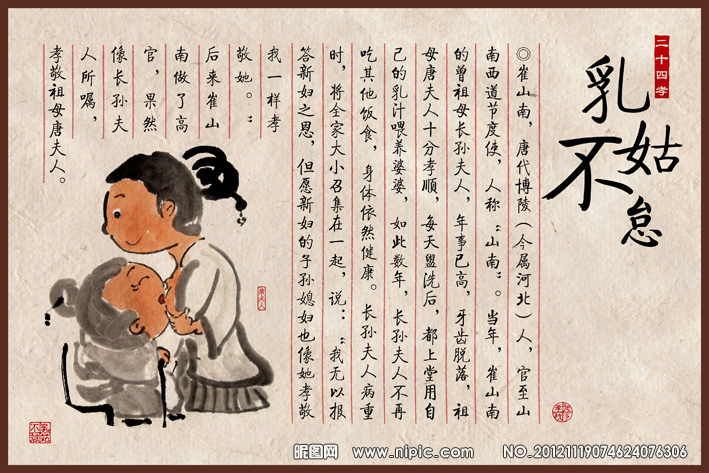 二十四孝
乳姑不怠
◎崔山南，唐代博陵（今属河北）人，官至山
南西道节度使，人称“山南”。当年，崔山南
的曾祖母长孙夫人，年事已高，牙齿脱落，祖
母唐夫人十分孝顺，每天盥洗后，都上堂用自
己的乳汁喂养婆婆，如此数年，长孙夫人不再
吃其他饭食，身体依然健康。长孙夫人病重
时，将全家大小召集在一起，说：“我无以报
答新妇之恩，但愿新妇的子孙媳妇也像她孝敬
我一样孝
敬她。”
后来崔山
南做了高
官，果然
像长孙夫
人所嘱，
孝敬祖母唐夫人。
昵图网 www.nipic.com
NO.20121119074624076306